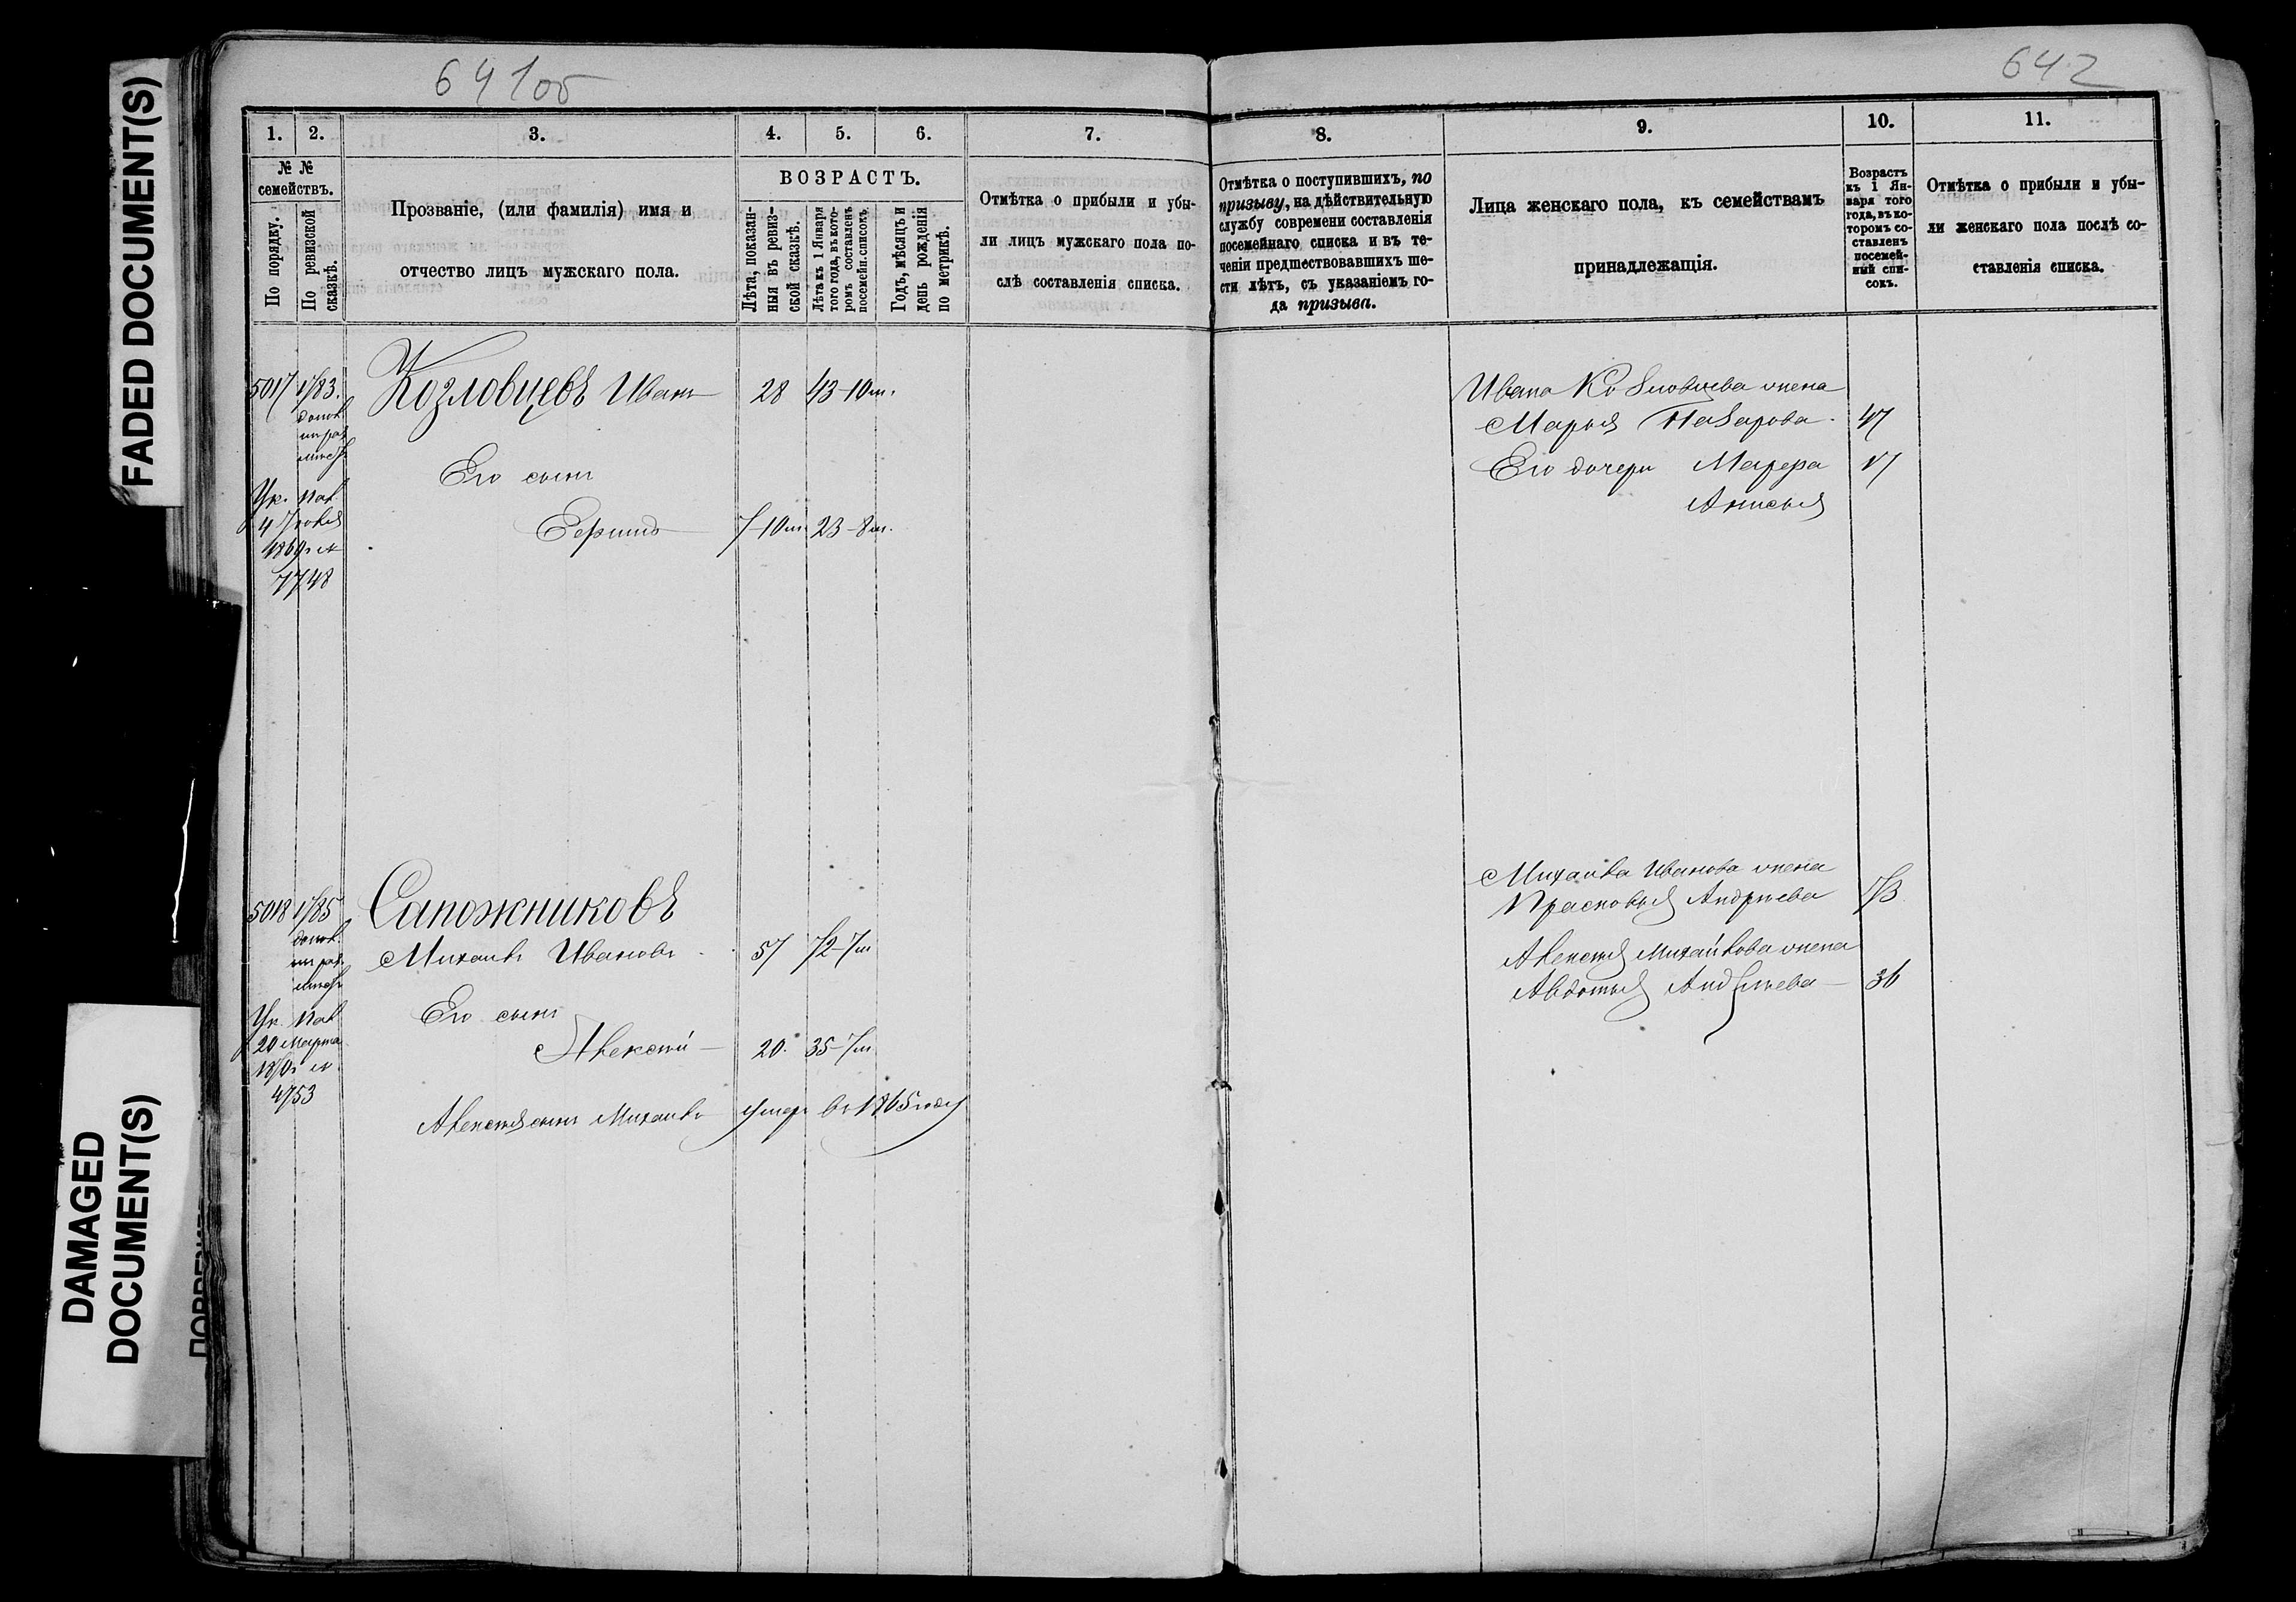 FADED DOCUMENT(S)
DAMAGED
DOCUMENT(S)
641об
642
1. 2. 3. 4. 5. 6. 7.
№ №
семействъ.
По порядку.
По ревизской
сказкѣ.
Прозваніе, (или фамилія) имя и
отчество лицъ мужскаго пола.
ВОЗРАСТЪ.
Лѣта, показан-
ныя въ ревиз-
ской сказкѣ.
Лѣта къ 1 Января
того года, въ кото-
ромъ составленъ
посемейн. списокъ.
Годъ, мѣсяцъ и
день рожденія
по метрикѣ.
Отмѣтка о прибыли и убы-
ли лицъ мужскаго пола по-
слѣ составленія списка.
8. 9. 10. 11.
Отмѣтка о поступившихъ, по
призыву, на дѣйствительную
службу современи составленія
посемейнаго списка и въ те-
ченіи предшествовавшихъ ше-
сти лѣтъ, съ указаніемъ го-
да призыва.
Лица женскаго пола, къ семействамъ
принадлежащія.
Возрастъ
къ 1 Ян-
варя того
года, въ ко-
торомъ со-
ставленъ
посемей-
ный спи-
сокъ.
Отмѣтка о прибыли и убы-
ли женскаго пола послѣ со-
ставленія списка.
5017 Козловцевъ Иванъ 28 43-10м.
Его сынъ
Ук. Пал.
1869г №
7748
7-10м. 23-8м.
Ивана Козловцева жена
Марья Назарова 47
Его дочери Марфа 17
Анисья
5018 Сапожниковъ
Михаилъ Ивановъ 57 72-7м
Его сынъ
Алексѣй 20. 35-7м
Ук. Пал
20 Марта
1870г №
4753
Алексѣя сынъ Михаилъ умеръ въ 1865 году
Михаила Иванова жена
Прасковья Андреева 73
Алексѣя Михайлова жена
Авдотья Андреева 36